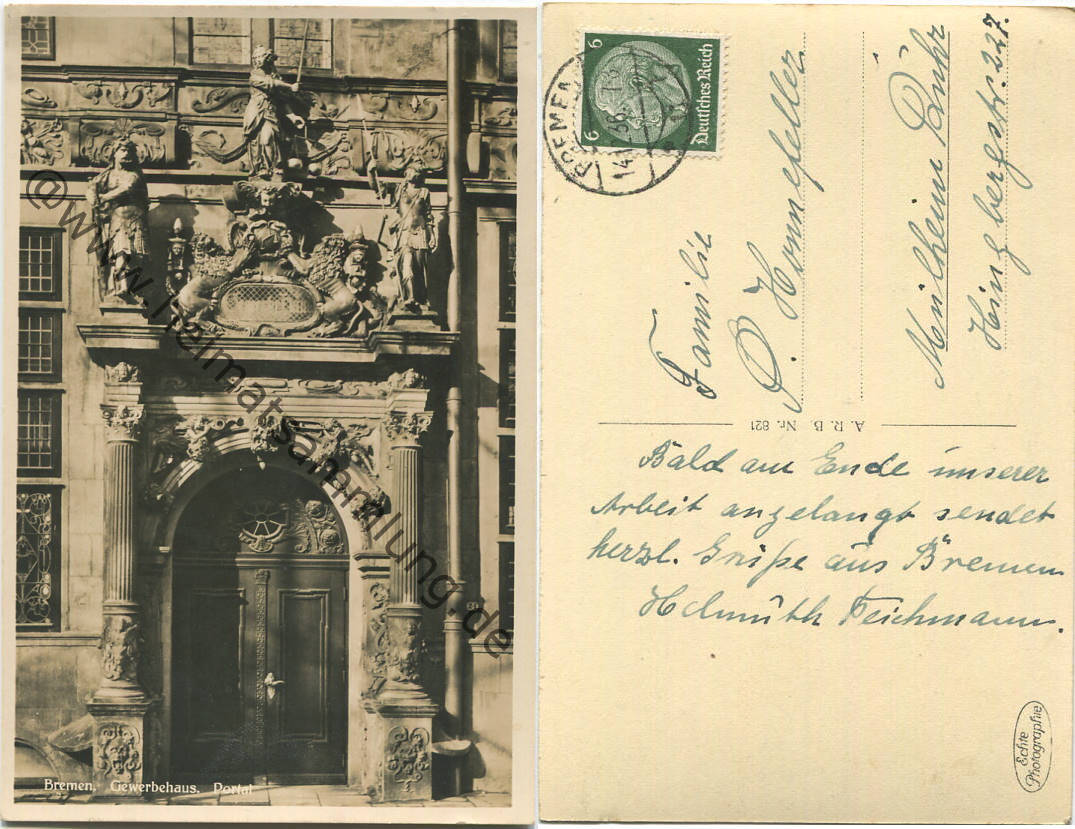 Bremen, Gewerbehaus, Portal
@www.heimatsammlung.de
6 6
Deutsches Reich
BREMEN
Familie
P. Honnefeller
Mülheim Ruhr
Hingbergstr. 227.
A. R. B. Nr. 821
Bald am Ende unserer
Arbeit angelangt sendet
herzl. Grüße aus Bremen
Helmuth Teichmann.
Echte
Photographie